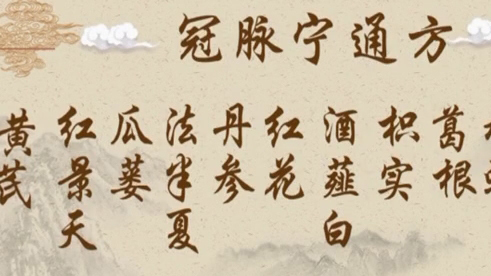 冠脉宁通方
黄芪
红景天
瓜蒌
法半夏
丹参
红花
酒薤白
枳实
葛根